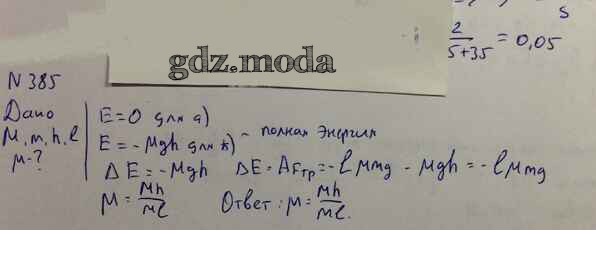 S
2/5+35 = 0,05
gdz.moda
N 385
Дано
M, m, h, l
μ-?
E=0 для a)
E = -Mgh для б) - полная энергия
ΔE = -Mgh ΔE = AFтр = -lμmg -Mgh = -lμmg
μ = Mh/ml Ответ: μ = Mh/ml.